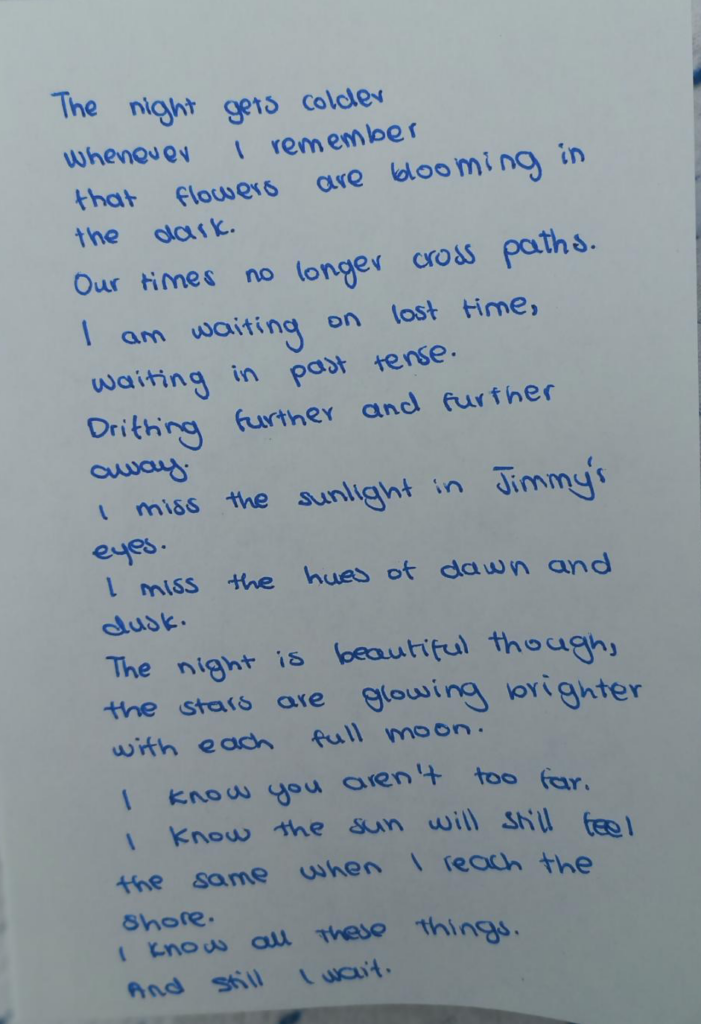 The night gets colder
whenever I remember
that flowers are blooming in
the dark.
Our times no longer cross paths.
I am waiting on lost time,
waiting in past tense.
Drifting further and further
away.
I miss the sunlight in Jimmy's
eyes.
I miss the hues of dawn and
dusk.
The night is beautiful though,
the stars are glowing brighter
with each full moon.
I know you aren't too far.
I know the sun will still feel
the same when I reach the
shore.
I know all these things.
And still I wait.